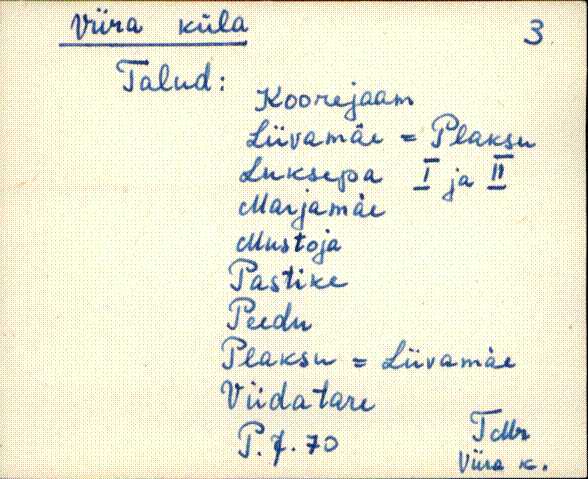 Viira küla
3
Talud:
Koorejaam
Liivamäe = Plaksu
Luksepa I ja II
Marjamäe
Mustoja
Pastike
Peedu
Plaksu = Liivamäe
Viidatare
P. J. 70
TMr
Viira k.